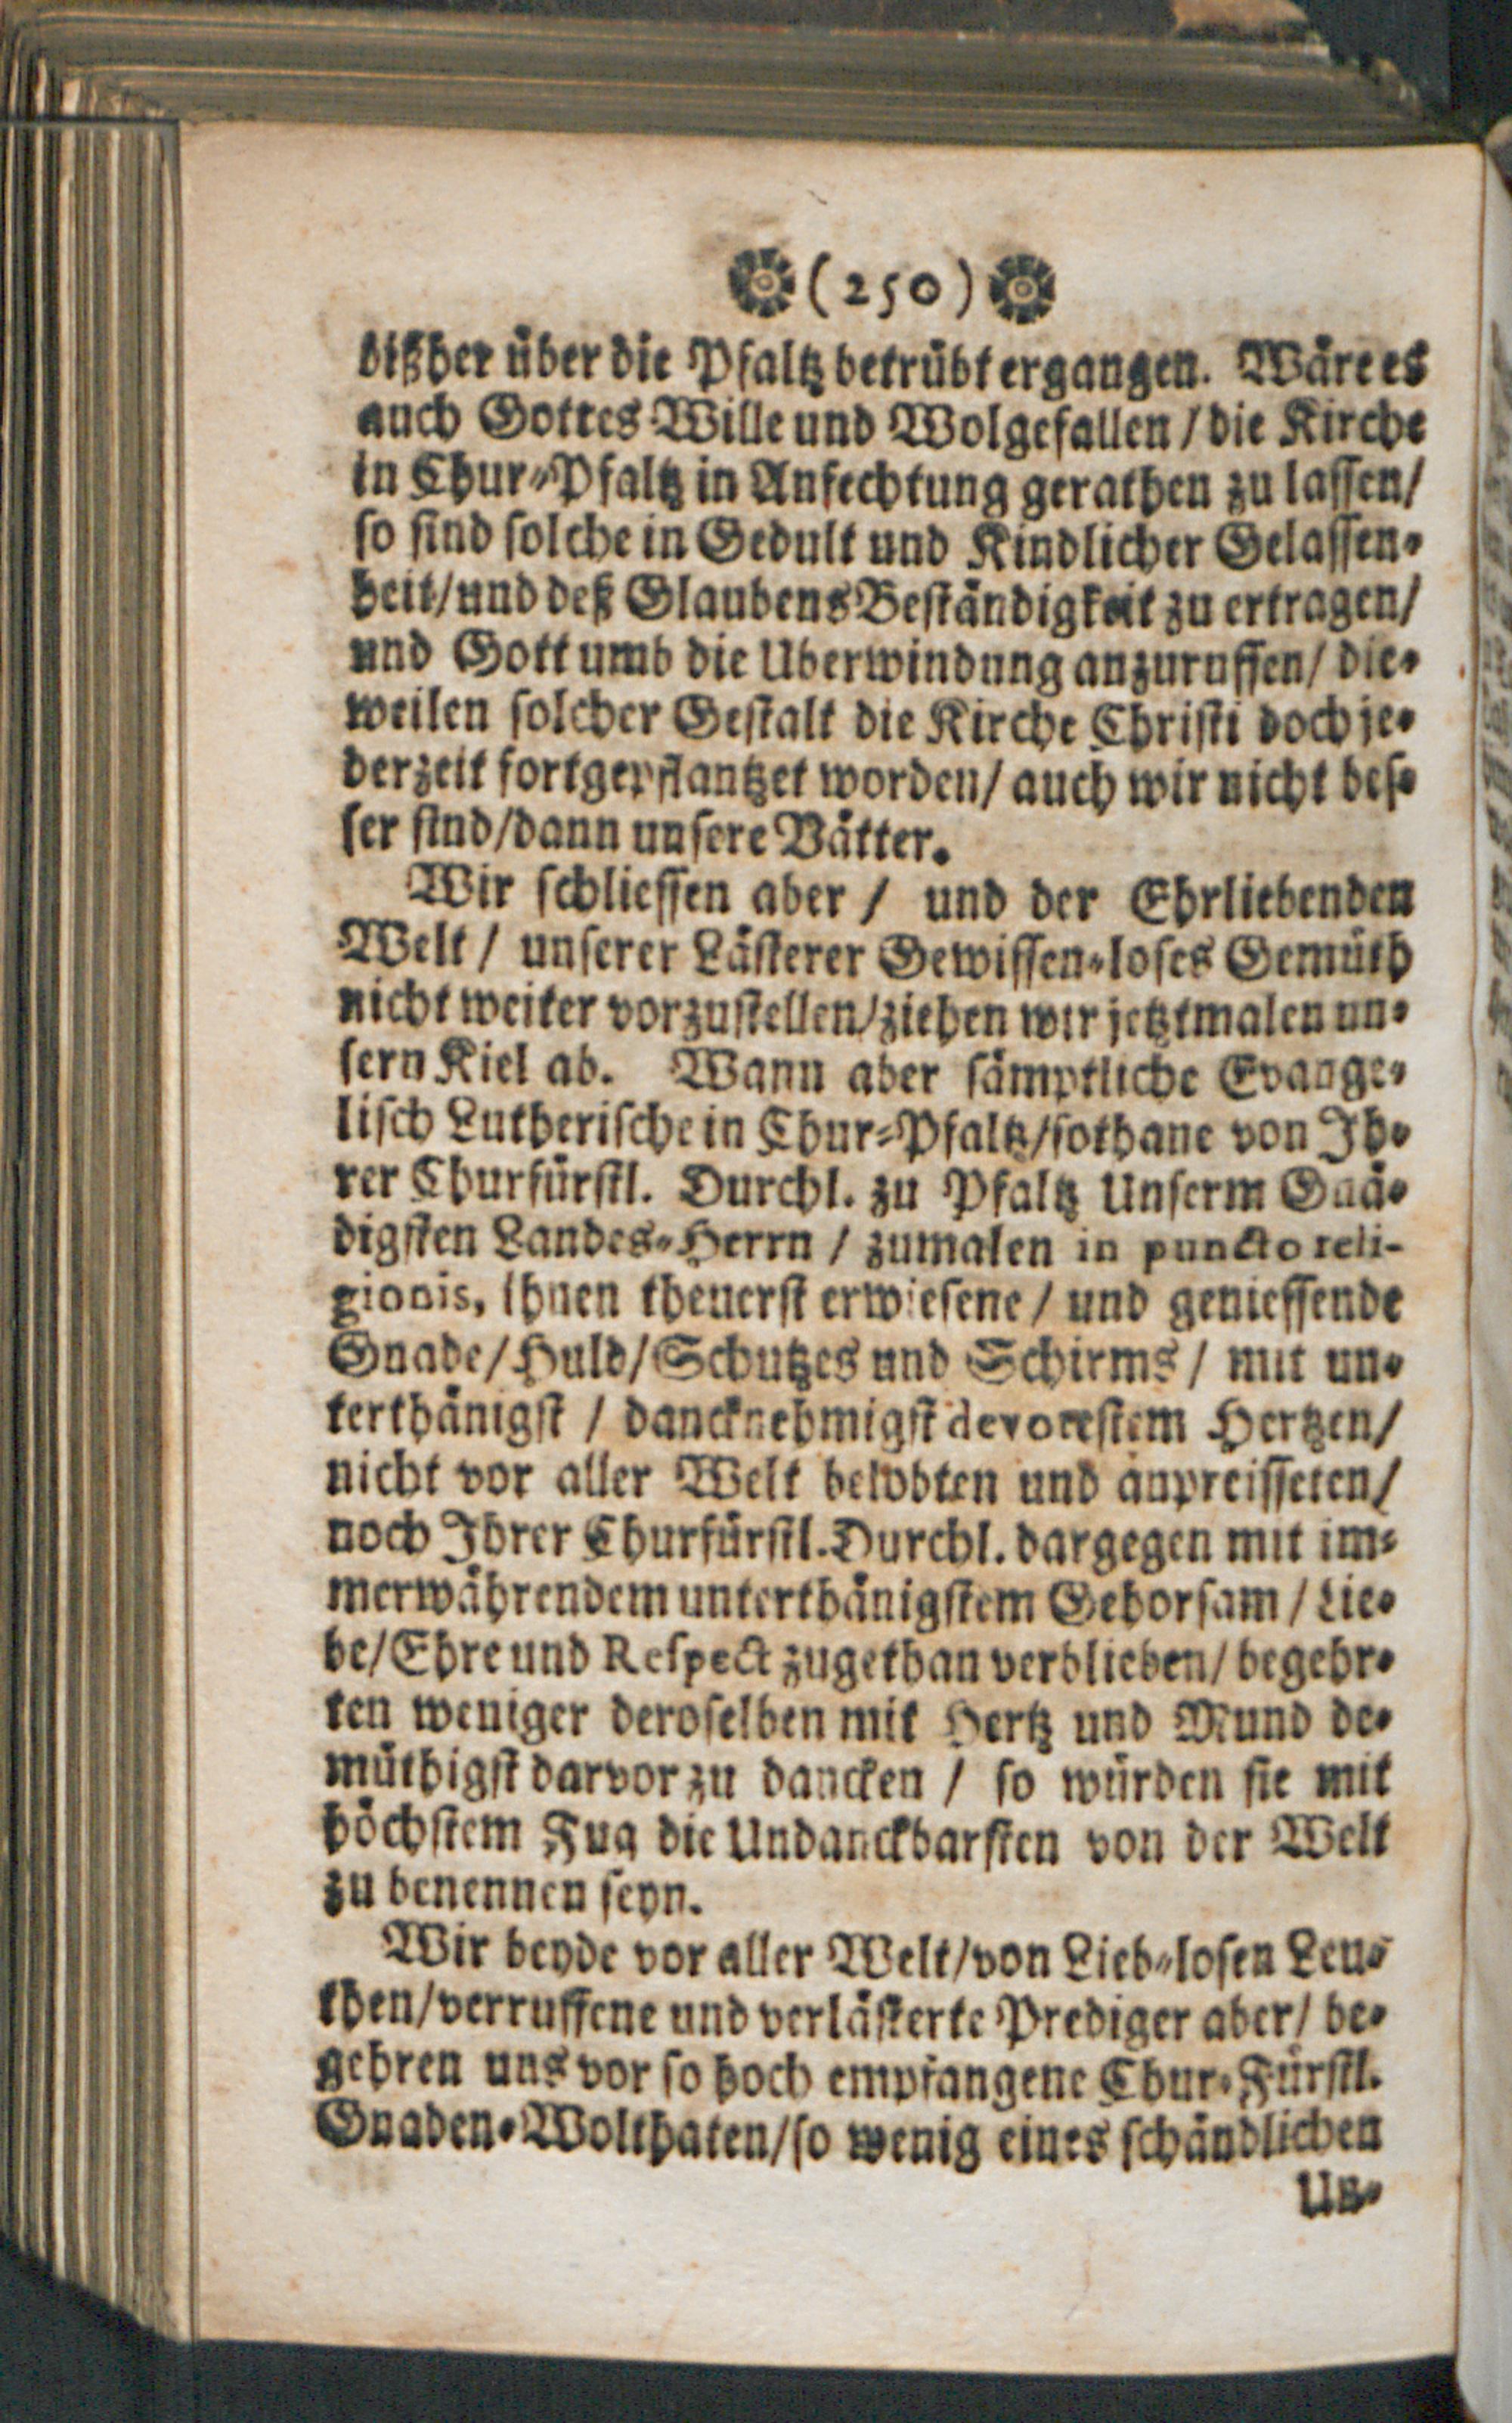 (250)
bißher über die Pfaltz betrübt ergangen. Wäre es
auch Gottes Wille und Wolgefallen / die Kirche
in Chur-Pfaltz in Anfechtung gerathen zu lassen/
so sind solche in Gedult und Kindlicher Gelassen-
heit/und deß Glaubens Beständigkeit zu ertragen/
und Gott umb die Uberwindung anzuruffen/ die-
weilen solcher Gestalt die Kirche Christi doch je-
derzeit fortgepflantzet worden/ auch wir nicht bes-
ser sind/dann unsere Vätter.
Wir schliessen aber / und der Ehrliebenden
Welt / unserer Lästerer Gewissen-loses Gemüth
nicht weiter vorzustellen/ziehen wir jetztmalen un-
sern Kiel ab. Wann aber sämptliche Evange-
lisch Lutherische in Chur-Pfaltz/sothane von Ih-
rer Churfürstl. Durchl. zu Pfaltz Unserm Gnä-
digsten Landes-Herrn / zumalen in puncto reli-
gionis, ihnen theuerst erwiesene / und geniessende
Gnade/Huld/Schutzes und Schirms / mit un-
terthänigst / dancknehmigst devotestem Hertzen/
nicht vor aller Welt belobten und anpreisseten/
noch Ihrer Churfürstl. Durchl. dargegen mit im-
merwährendem unterthänigstem Gehorsam / Lie-
be/Ehre und Respect zugethan verblieben/ begehr-
ten weniger deroselben mit Hertz und Mund de-
müthigst darvor zu dancken / so würden sie mit
höchstem Fug die Undanckbarsten von der Welt
zu benennen seyn.
Wir beyde vor aller Welt/von Lieb-losen Leu-
then/verruffene und verlästerte Prediger aber/ be-
gehren uns vor so hoch empfangene Chur-Fürstl.
Gnaden-Wolthaten/so wenig eines schändlichen
Un-